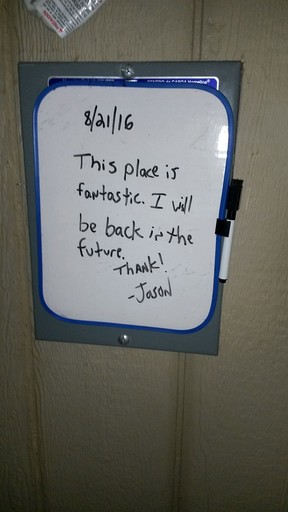 8/21/16
This place is
fantastic. I will
be back in the
future.
THANK!
-JASON